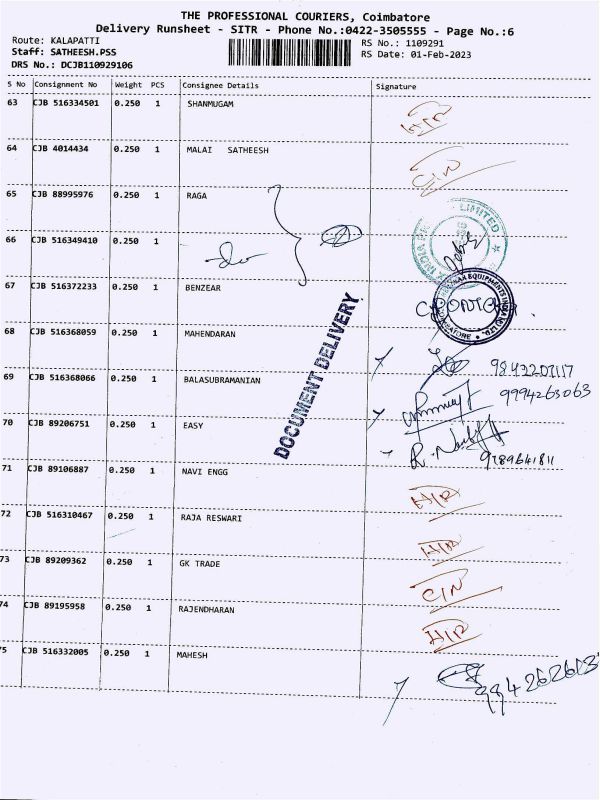 THE PROFESSIONAL COURIERS, Coimbatore
Delivery Runsheet - SITR - Phone No.:0422-3505555 - Page No.:6
Route: KALAPATTI
Staff: SATHEESH.PSS
DRS No.: DCJB110929106
RS No.: 1109291
RS Date: 01-Feb-2023
S No Consignment No Weight PCS Consignee Details Signature
63 CJB 516334501 0.250 1 SHANMUGAM
64 CJB 4014434 0.250 1 MALAI SATHEESH
65 CJB 88995976 0.250 1 RAGA
LIMITED
66 CJB 516349410 0.250 1
67 CJB 516372233 0.250 1 BENZEAR
DOCUMENT DELIVERY
68 CJB 516368059 0.250 1 MAHENDARAN
9843207117
69 CJB 516368066 0.250 1 BALASUBRAMANIAN
9994263063
70 CJB 89206751 0.250 1 EASY
9789641811
71 CJB 89106887 0.250 1 NAVI ENGG
H/R
72 CJB 516310467 0.250 1 RAJA RESWARI
H/R
73 CJB 89209362 0.250 1 GK TRADE
C/N
74 CJB 89195958 0.250 1 RAJENDHARAN
H/R
75 CJB 516332005 0.250 1 MAHESH